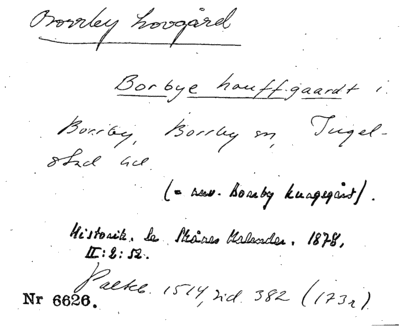 Borrby hovgård
Borbye houffgaardt i
Borrby, Borrby sn, Ingel-
stad hd.
(= nuv. Borrby kungsgård).
Historik. se Skånes Kalender. 1878,
II: 2: 52.
Palteb. 1514, sid. 382 (173r)
Nr 6626.